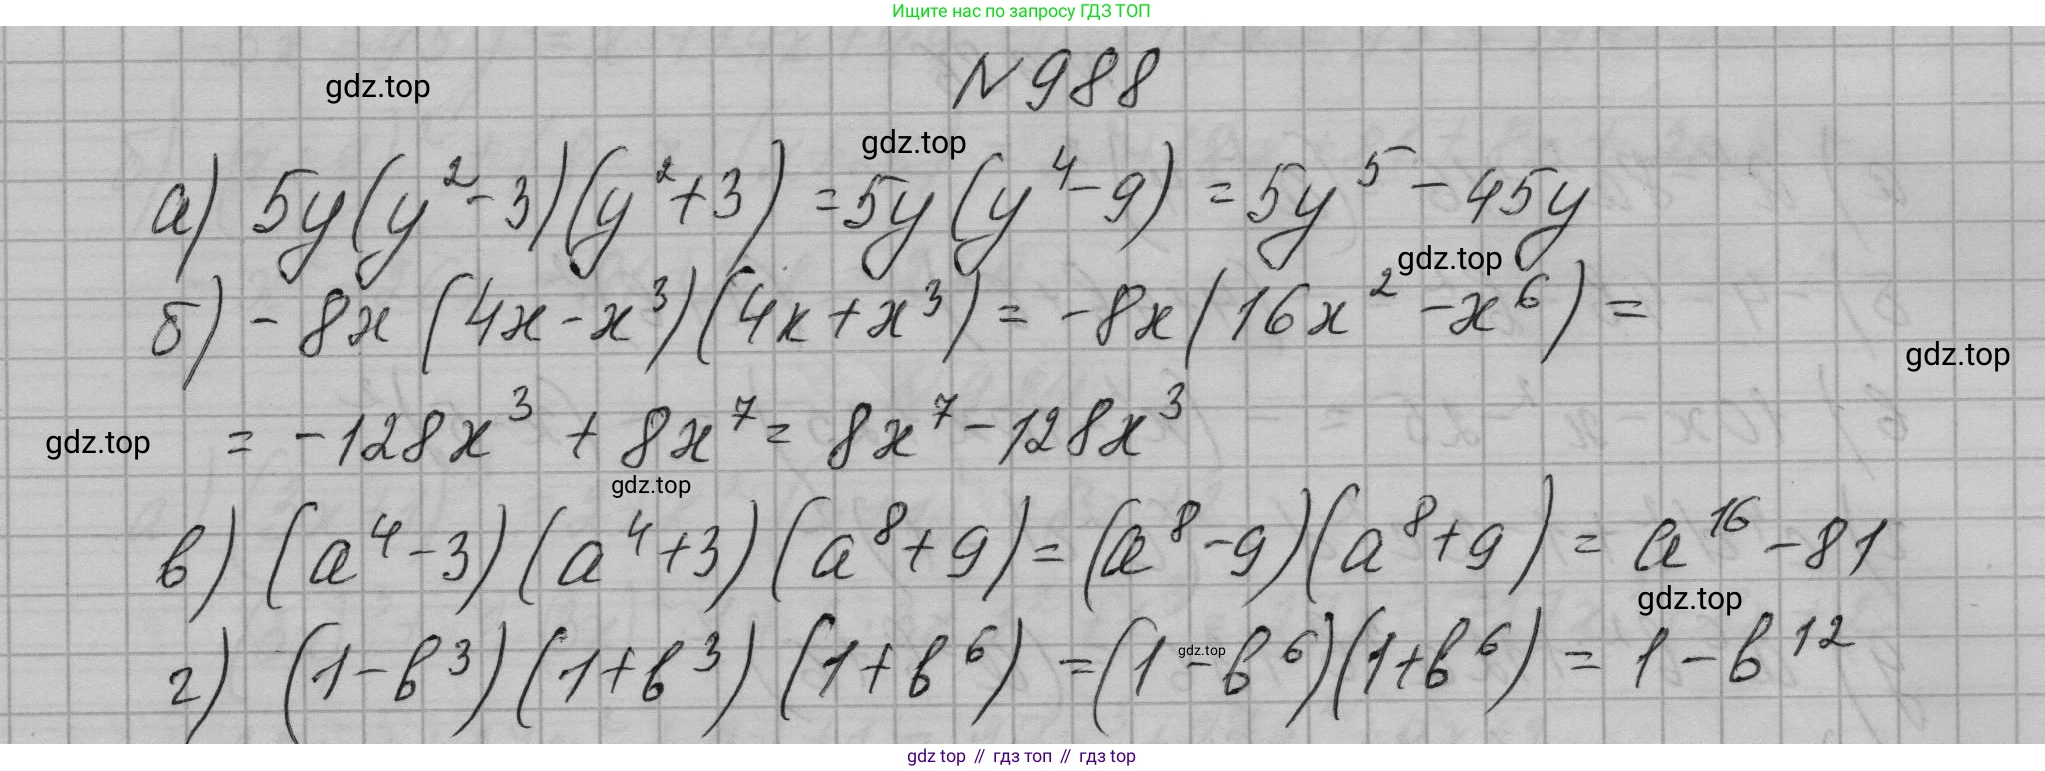 Ищите нас по запросу ГДЗ ТОП
№ 988
gdz.top
gdz.top
а) 5y(y²-3)(y²+3) = 5y(y⁴-9) = 5y⁵-45y
gdz.top
б) -8x(4x-x³)(4x+x³) = -8x(16x²-x⁶) =
gdz.top
= -128x³ + 8x⁷ = 8x⁷-128x³
gdz.top
gdz.top
в) (a⁴-3)(a⁴+3)(a⁸+9) = (a⁸-9)(a⁸+9) = a¹⁶-81
gdz.top
г) (1-b³)(1+b³)(1+b⁶) = (1-b⁶)(1+b⁶) = 1-b¹²
gdz.top
gdz top // гдз топ // gdz top